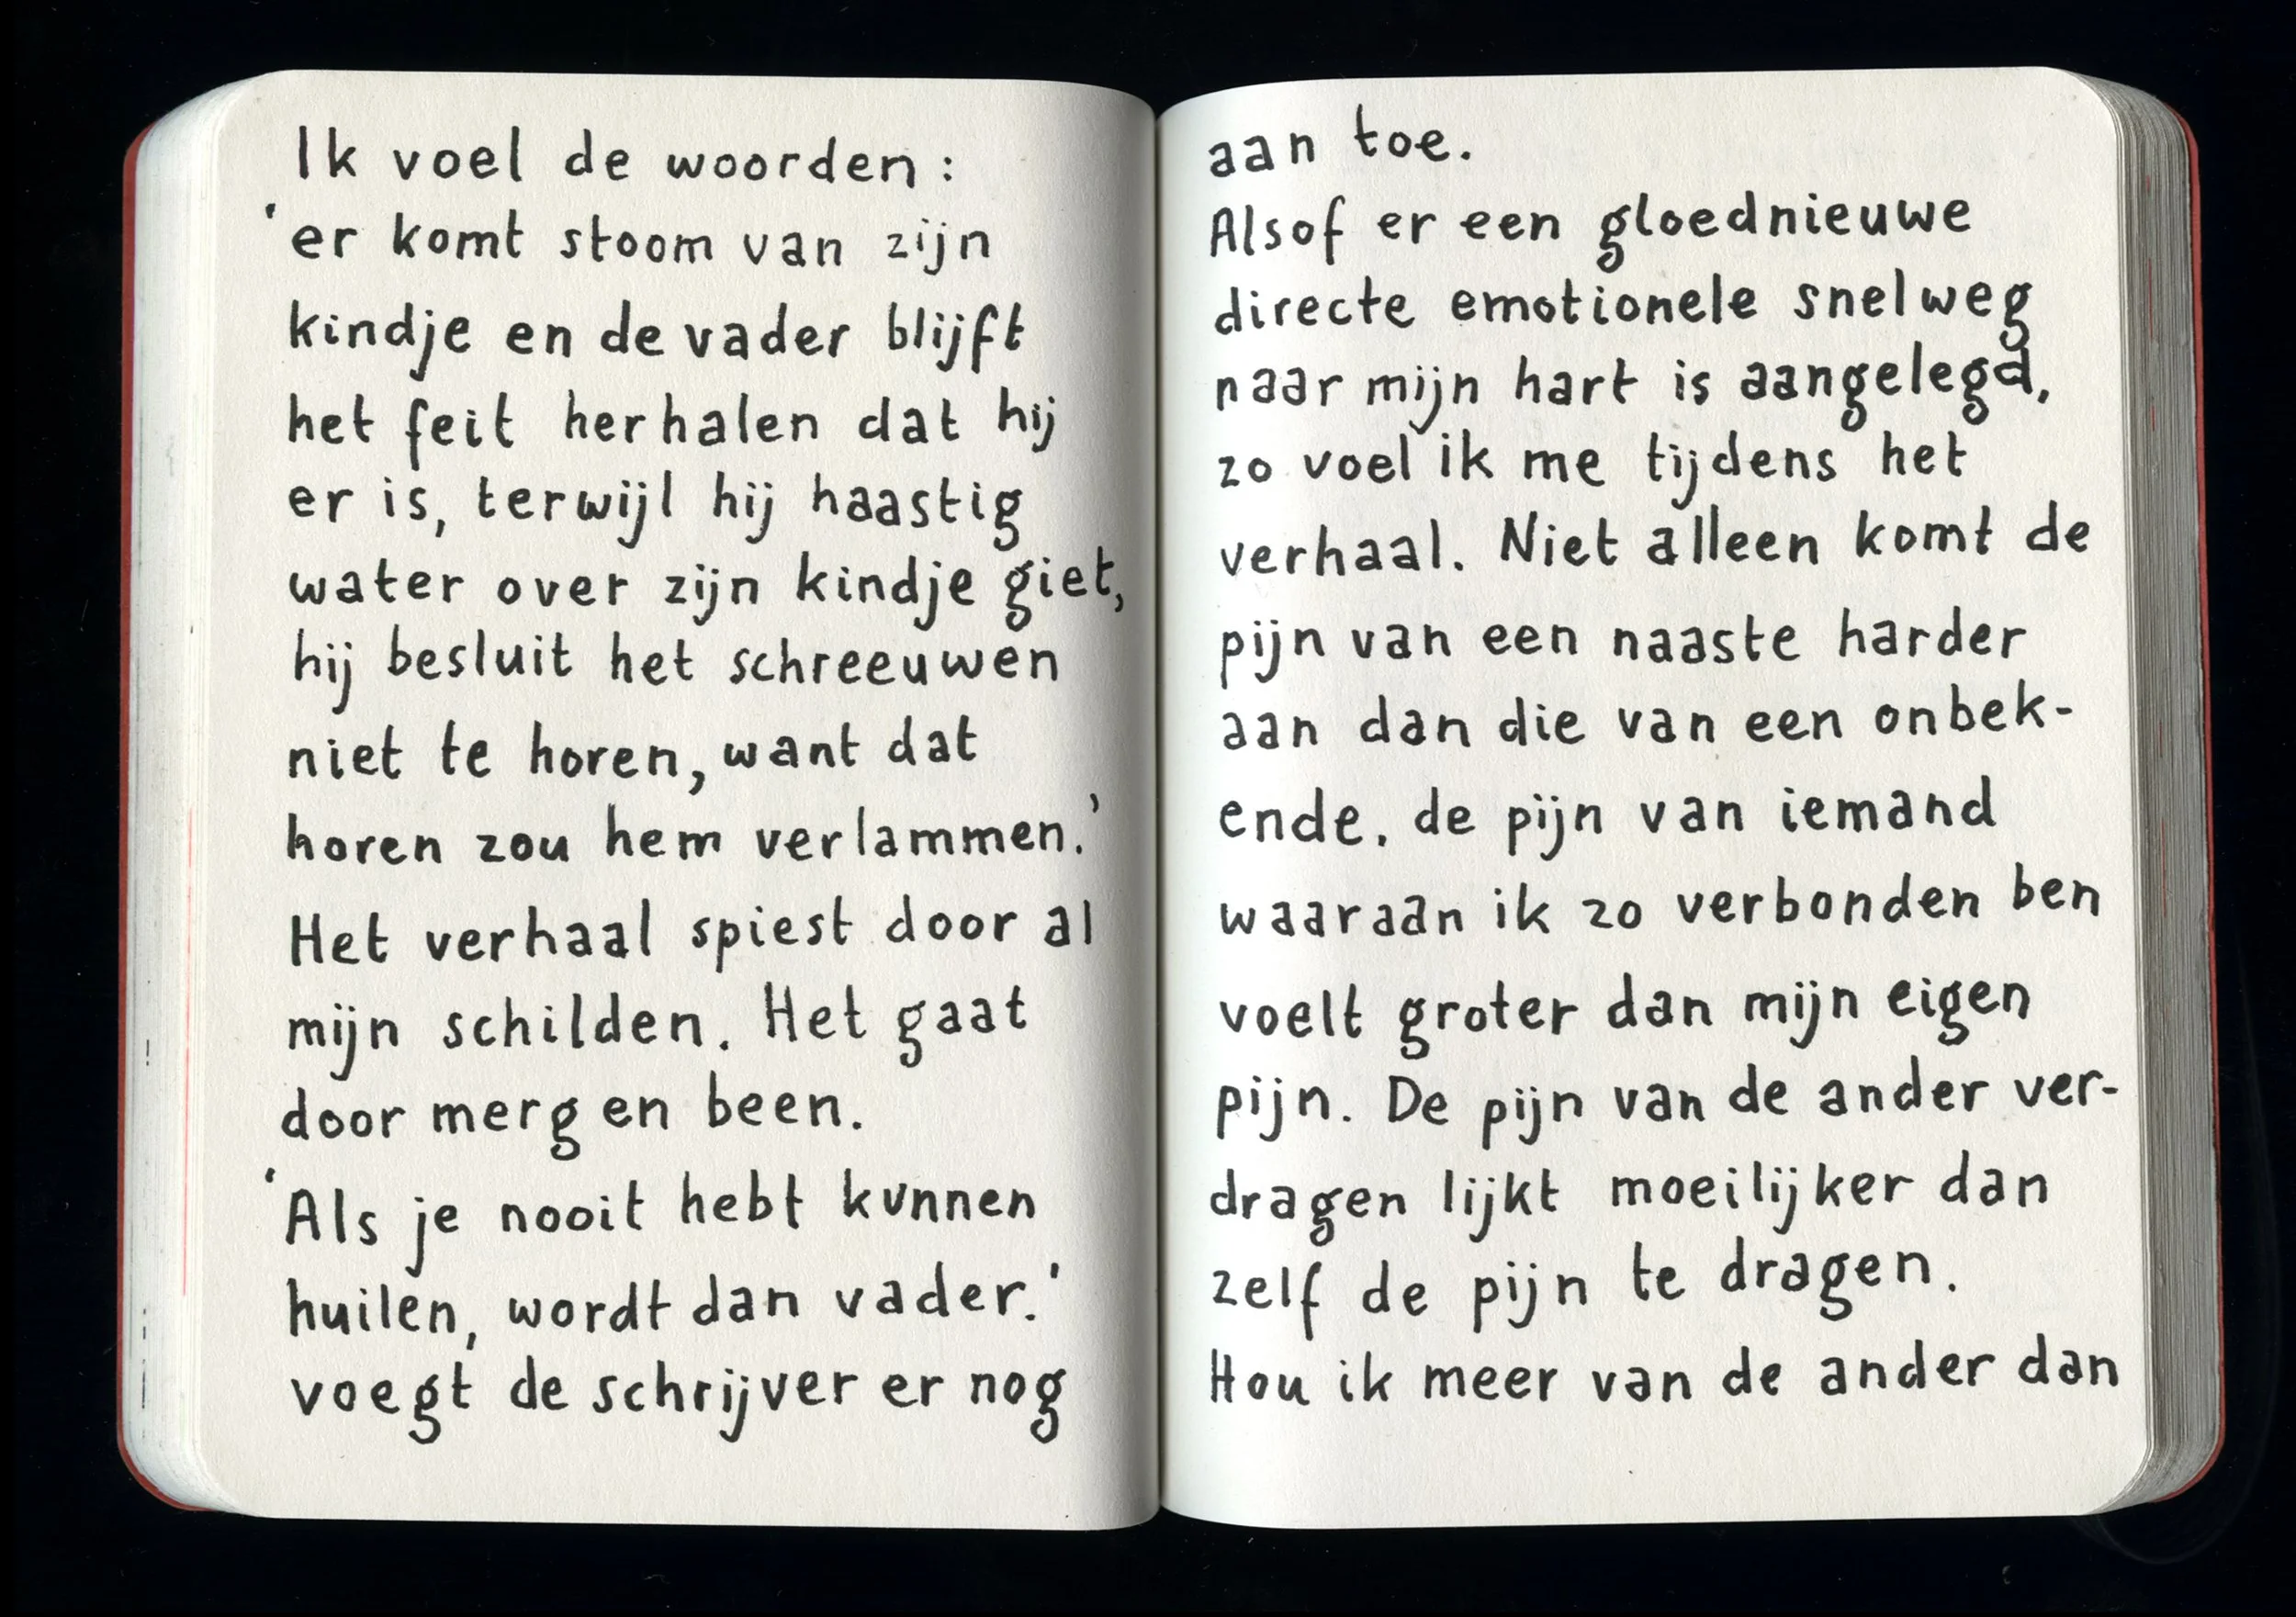 Ik voel de woorden:
'er komt stoom van zijn
kindje en de vader blijft
het feit herhalen dat hij
er is, terwijl hij haastig
water over zijn kindje giet,
hij besluit het schreeuwen
niet te horen, want dat
horen zou hem verlammen.'
Het verhaal spiest door al
mijn schilden. Het gaat
door merg en been.
'Als je nooit hebt kunnen
huilen, wordt dan vader.'
voegt de schrijver er nog
aan toe.
Alsof er een gloednieuwe
directe emotionele snelweg
naar mijn hart is aangelegd,
zo voel ik me tijdens het
verhaal. Niet alleen komt de
pijn van een naaste harder
aan dan die van een onbek-
ende. de pijn van iemand
waaraan ik zo verbonden ben
voelt groter dan mijn eigen
pijn. De pijn van de ander ver-
dragen lijkt moeilijker dan
zelf de pijn te dragen.
Hou ik meer van de ander dan